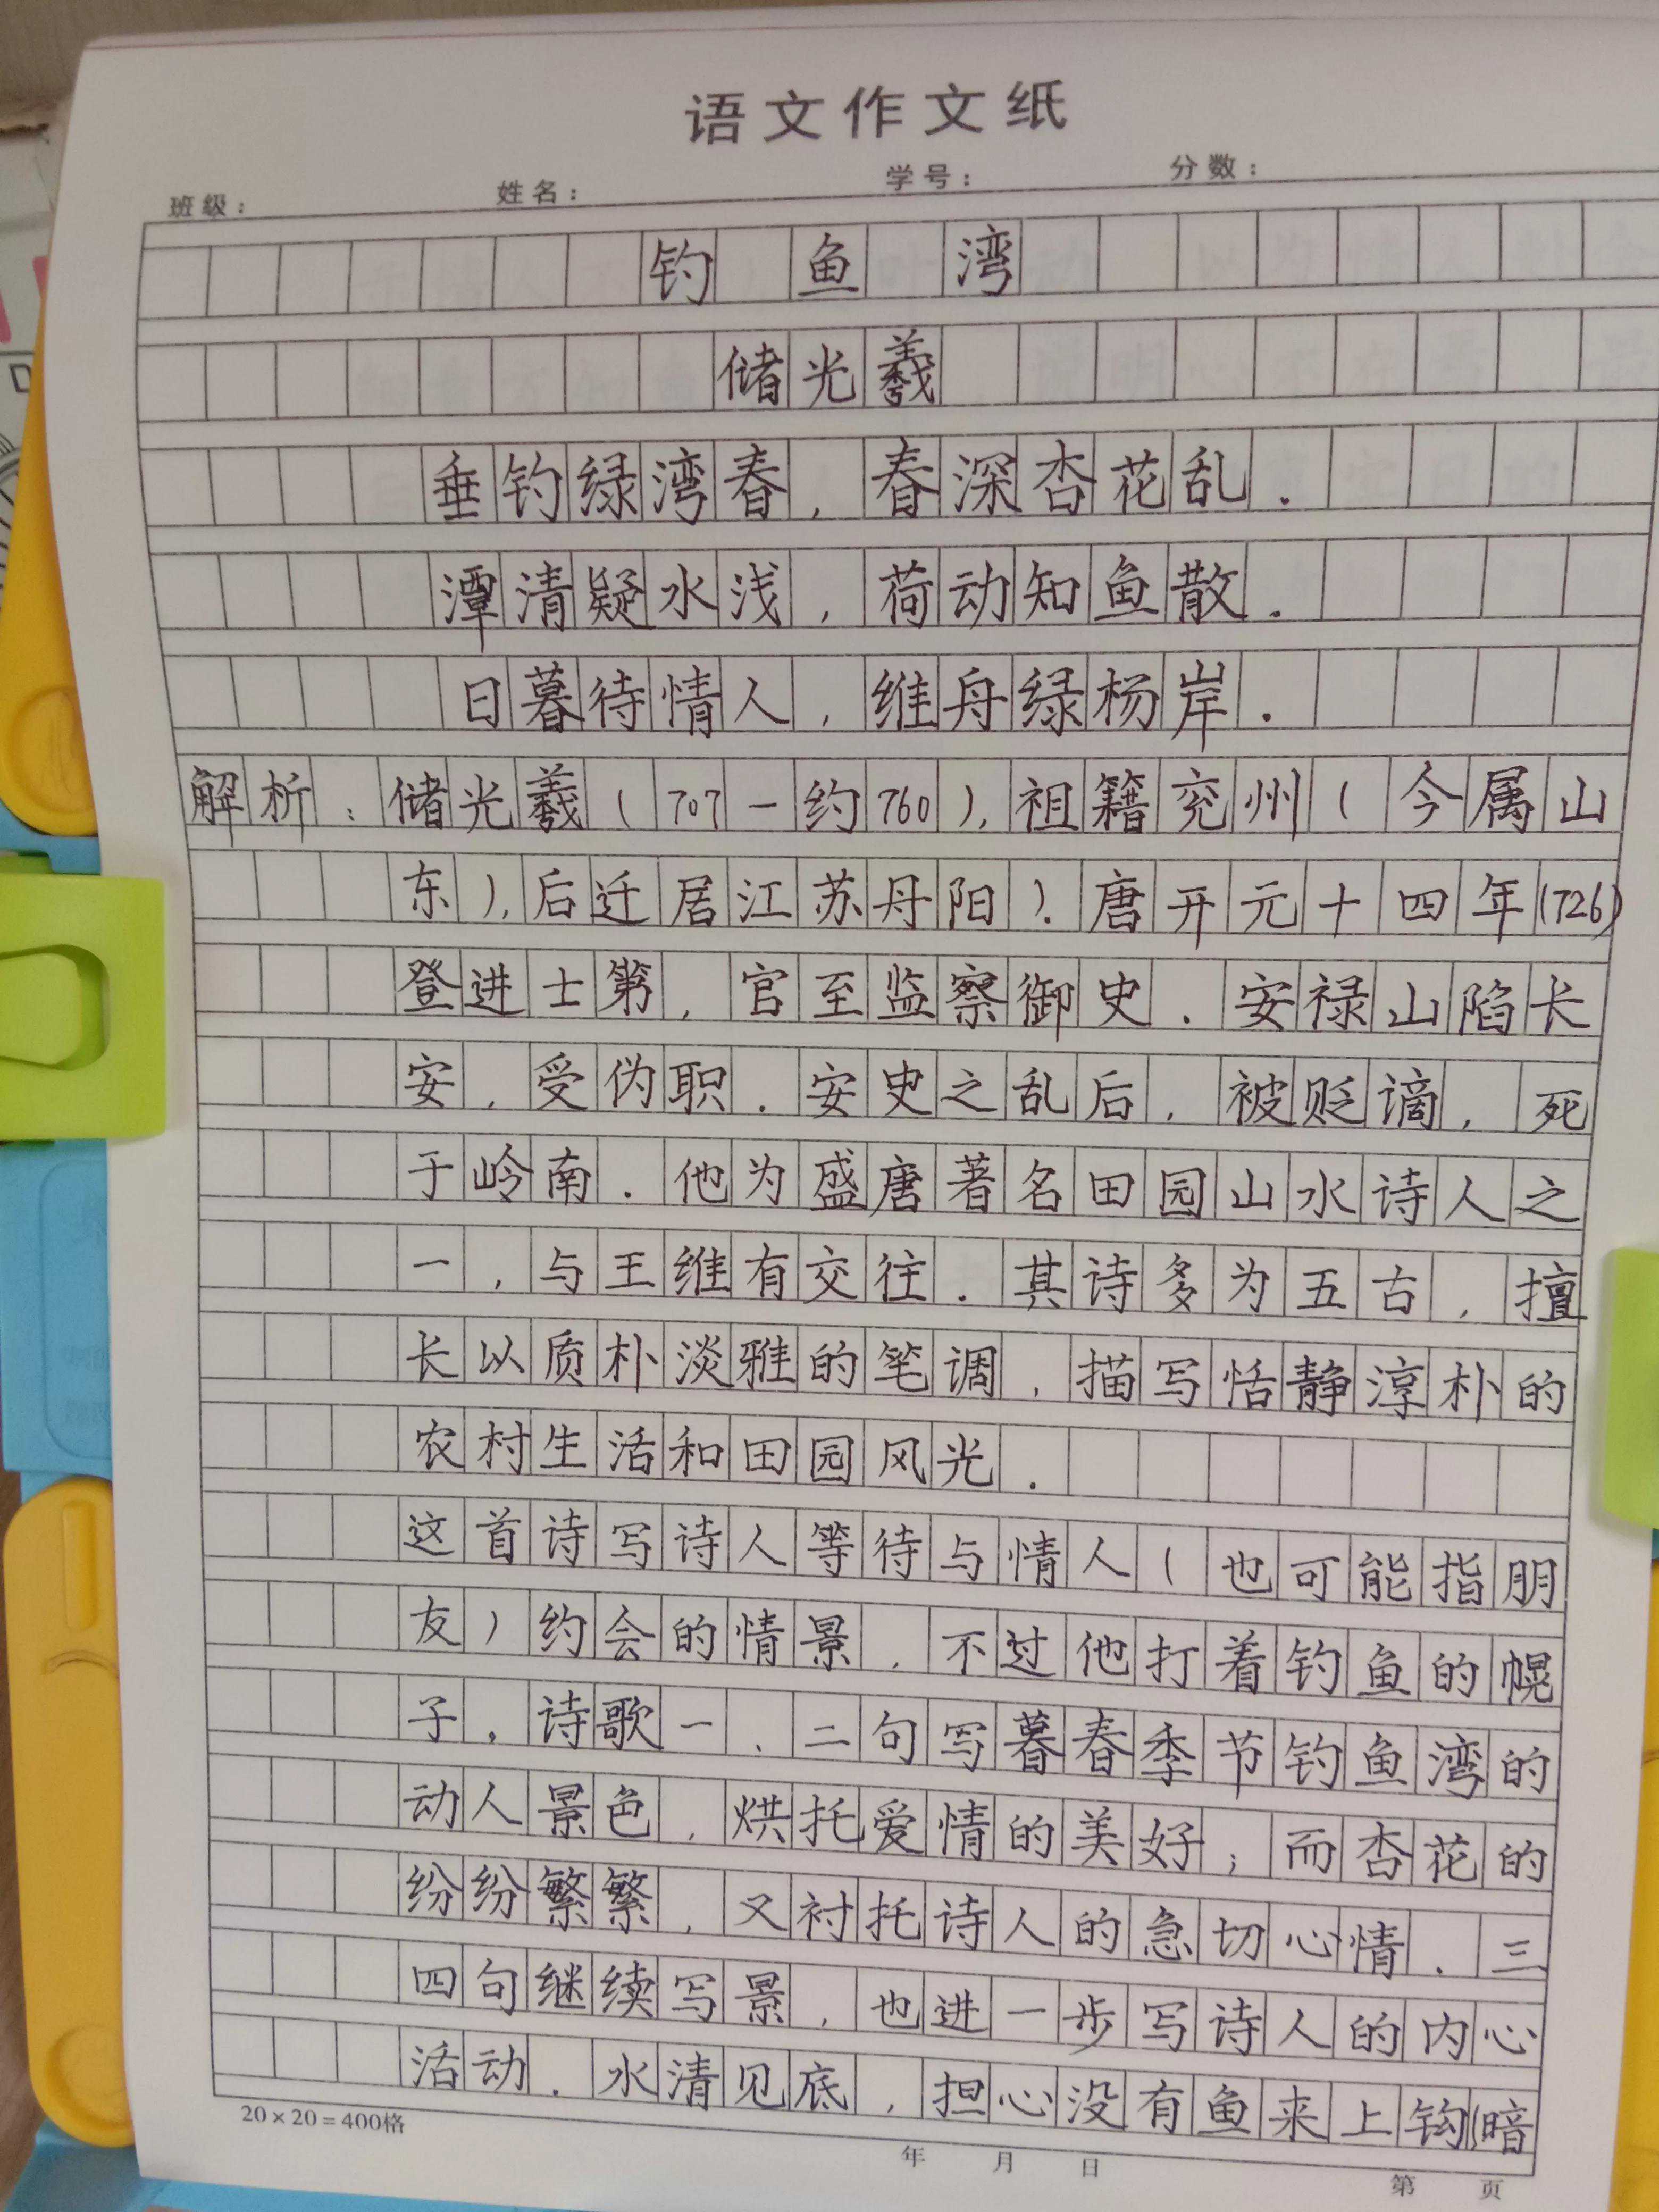 语文作文纸
班级： 姓名： 学号： 分数：
钓 鱼 湾
储光羲
垂钓绿湾春，春深杏花乱.
潭清疑水浅，荷动知鱼散.
日暮待情人，维舟绿杨岸.
解析：储光羲(707一约760),祖籍兖州(今属山
东),后迁居江苏丹阳).唐开元十四年(726)
登进士第，官至监察御史.安禄山陷长
安，受伪职.安史之乱后，被贬谪，死
于岭南.他为盛唐著名田园山水诗人之
一，与王维有交往.其诗多为五古，擅
长以质朴淡雅的笔调，描写恬静淳朴的
农村生活和田园风光.
这首诗写诗人等待与情人(也可能指朋
友)约会的情景，不过他打着钓鱼的幌
子，诗歌一、二句写暮春季节钓鱼湾的
动人景色，烘托爱情的美好；而杏花的
纷纷繁繁，又衬托诗人的急切心情.三
四句继续写景，也进一步写诗人的内心
活动.水清见底，担心没有鱼来上钩(暗
20×20=400格
年 月 日
第 页